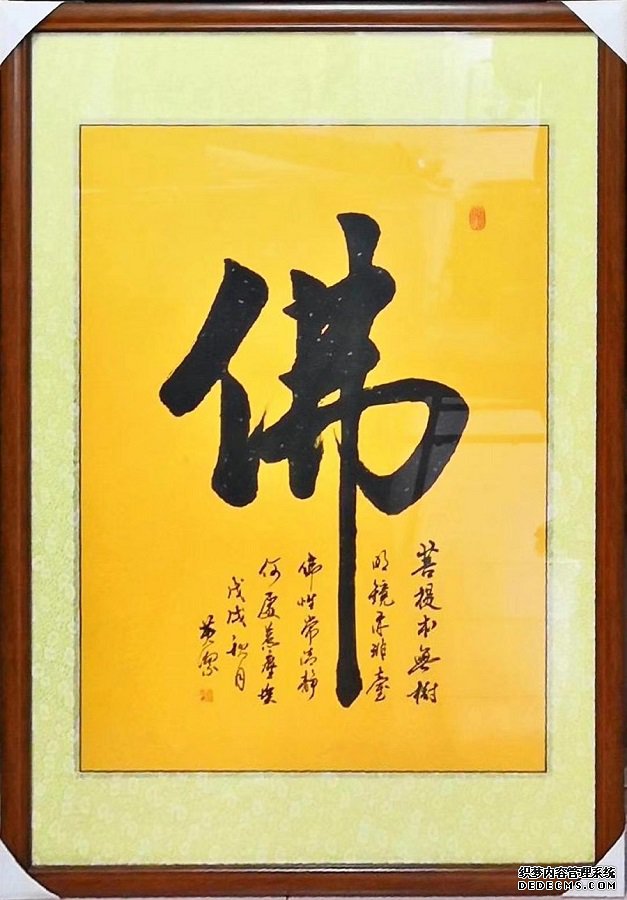 佛
菩提本無樹
明鏡亦非臺
佛性常清静
何處惹塵埃
戊戌秋月
织梦内容管理系统
DEDECMS.COM